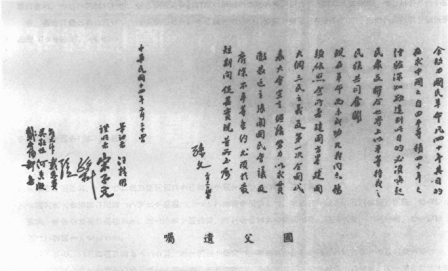 余致力國民革命凡四十年其目的
在求中國之自由平等積四十年之
經驗深知欲達到此目的必須喚起
民眾及聯合世界上以平等待我之
民族共同奮鬥
現在革命尚未成功凡我同志務
須依照余所著建國方略建國
大綱三民主義及第一次全國代
表大會宣言繼續努力以求貫
徹最近主張開國民會議及
廢除不平等條約尤須於最
短期間促其實現是所至囑
孫文
中華民國十四年二月二十四日
筆記者 汪精衛
證明者 宋子文
戴恩賽
何香凝
鄒魯
國父遺囑